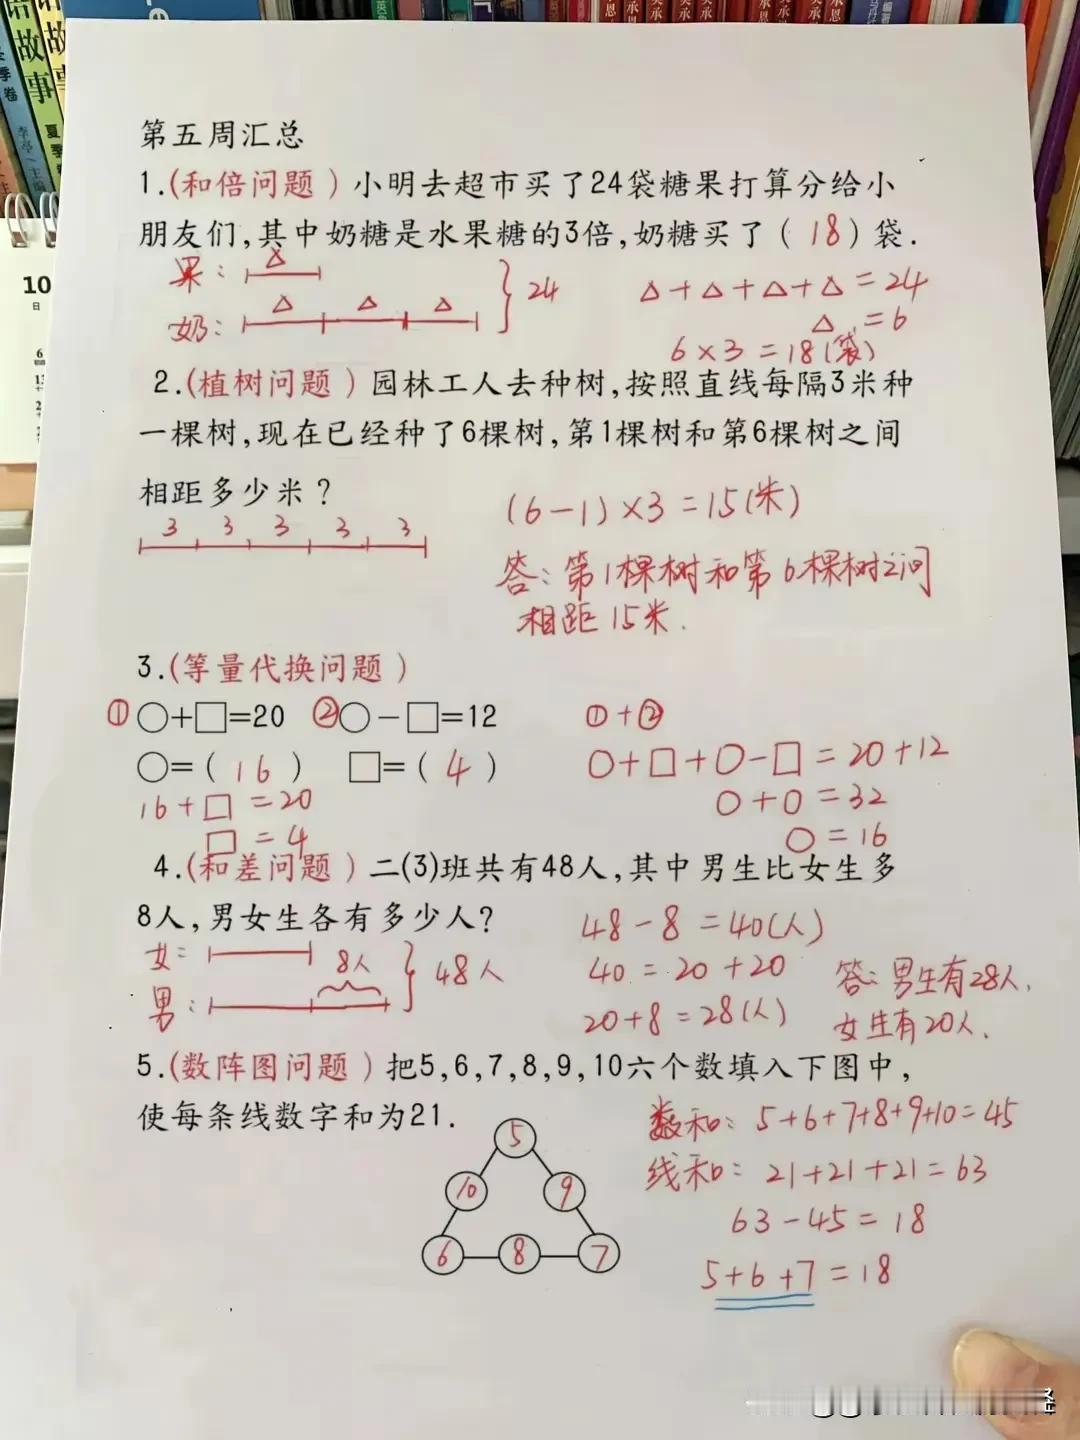 故事
故事
冬季卷
夏季
李亭
主编
10
日
6
第五周汇总
1.(和倍问题)小明去超市买了24袋糖果打算分给小
朋友们,其中奶糖是水果糖的3倍,奶糖买了(18)袋.
果: △
奶: △ △ △
24
△+△+△+△=24
△=6
6×3=18(袋)
2.(植树问题)园林工人去种树,按照直线每隔3米种
一棵树,现在已经种了6棵树,第1棵树和第6棵树之间
相距多少米?
3 3 3 3 3
(6-1)×3=15(米)
答:第1棵树和第6棵树之间
相距15米.
3.(等量代换问题)
①○+□=20 ②○-□=12
○=(16) □=(4)
16+□=20
□=4
①+②
○+□+○-□=20+12
○+○=32
○=16
4.(和差问题)二(3)班共有48人,其中男生比女生多
8人,男女生各有多少人?
女:
男:
8人
48人
48-8=40(人)
40=20+20
20+8=28(人)
答:男生有28人,
女生有20人.
5.(数阵图问题)把5,6,7,8,9,10六个数填入下图中,
使每条线数字和为21.
5
10 9
6 8 7
数和:5+6+7+8+9+10=45
线和:21+21+21=63
63-45=18
5+6+7=18